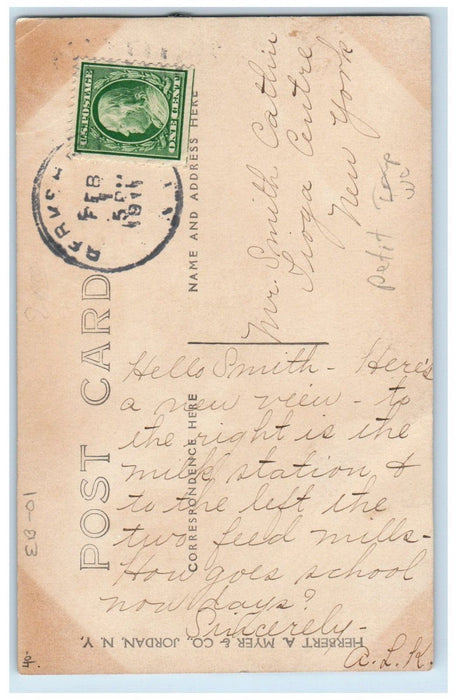 POST CARD
CORRESPONDENCE HERE
NAME AND ADDRESS HERE
U.S. POSTAGE
ONE CENT
FEB
5 PM
1911
Mr. Smith Catlin
Tioga Centre
New York
Hello Smith - Here's
a new view - to
the right is the
milk station &
to the left the
two feed mills -
How goes school
now days?
Sincerely -
A.L.K.
HERBERT A. MYER & CO., JORDAN, N. Y.
petit
10-83